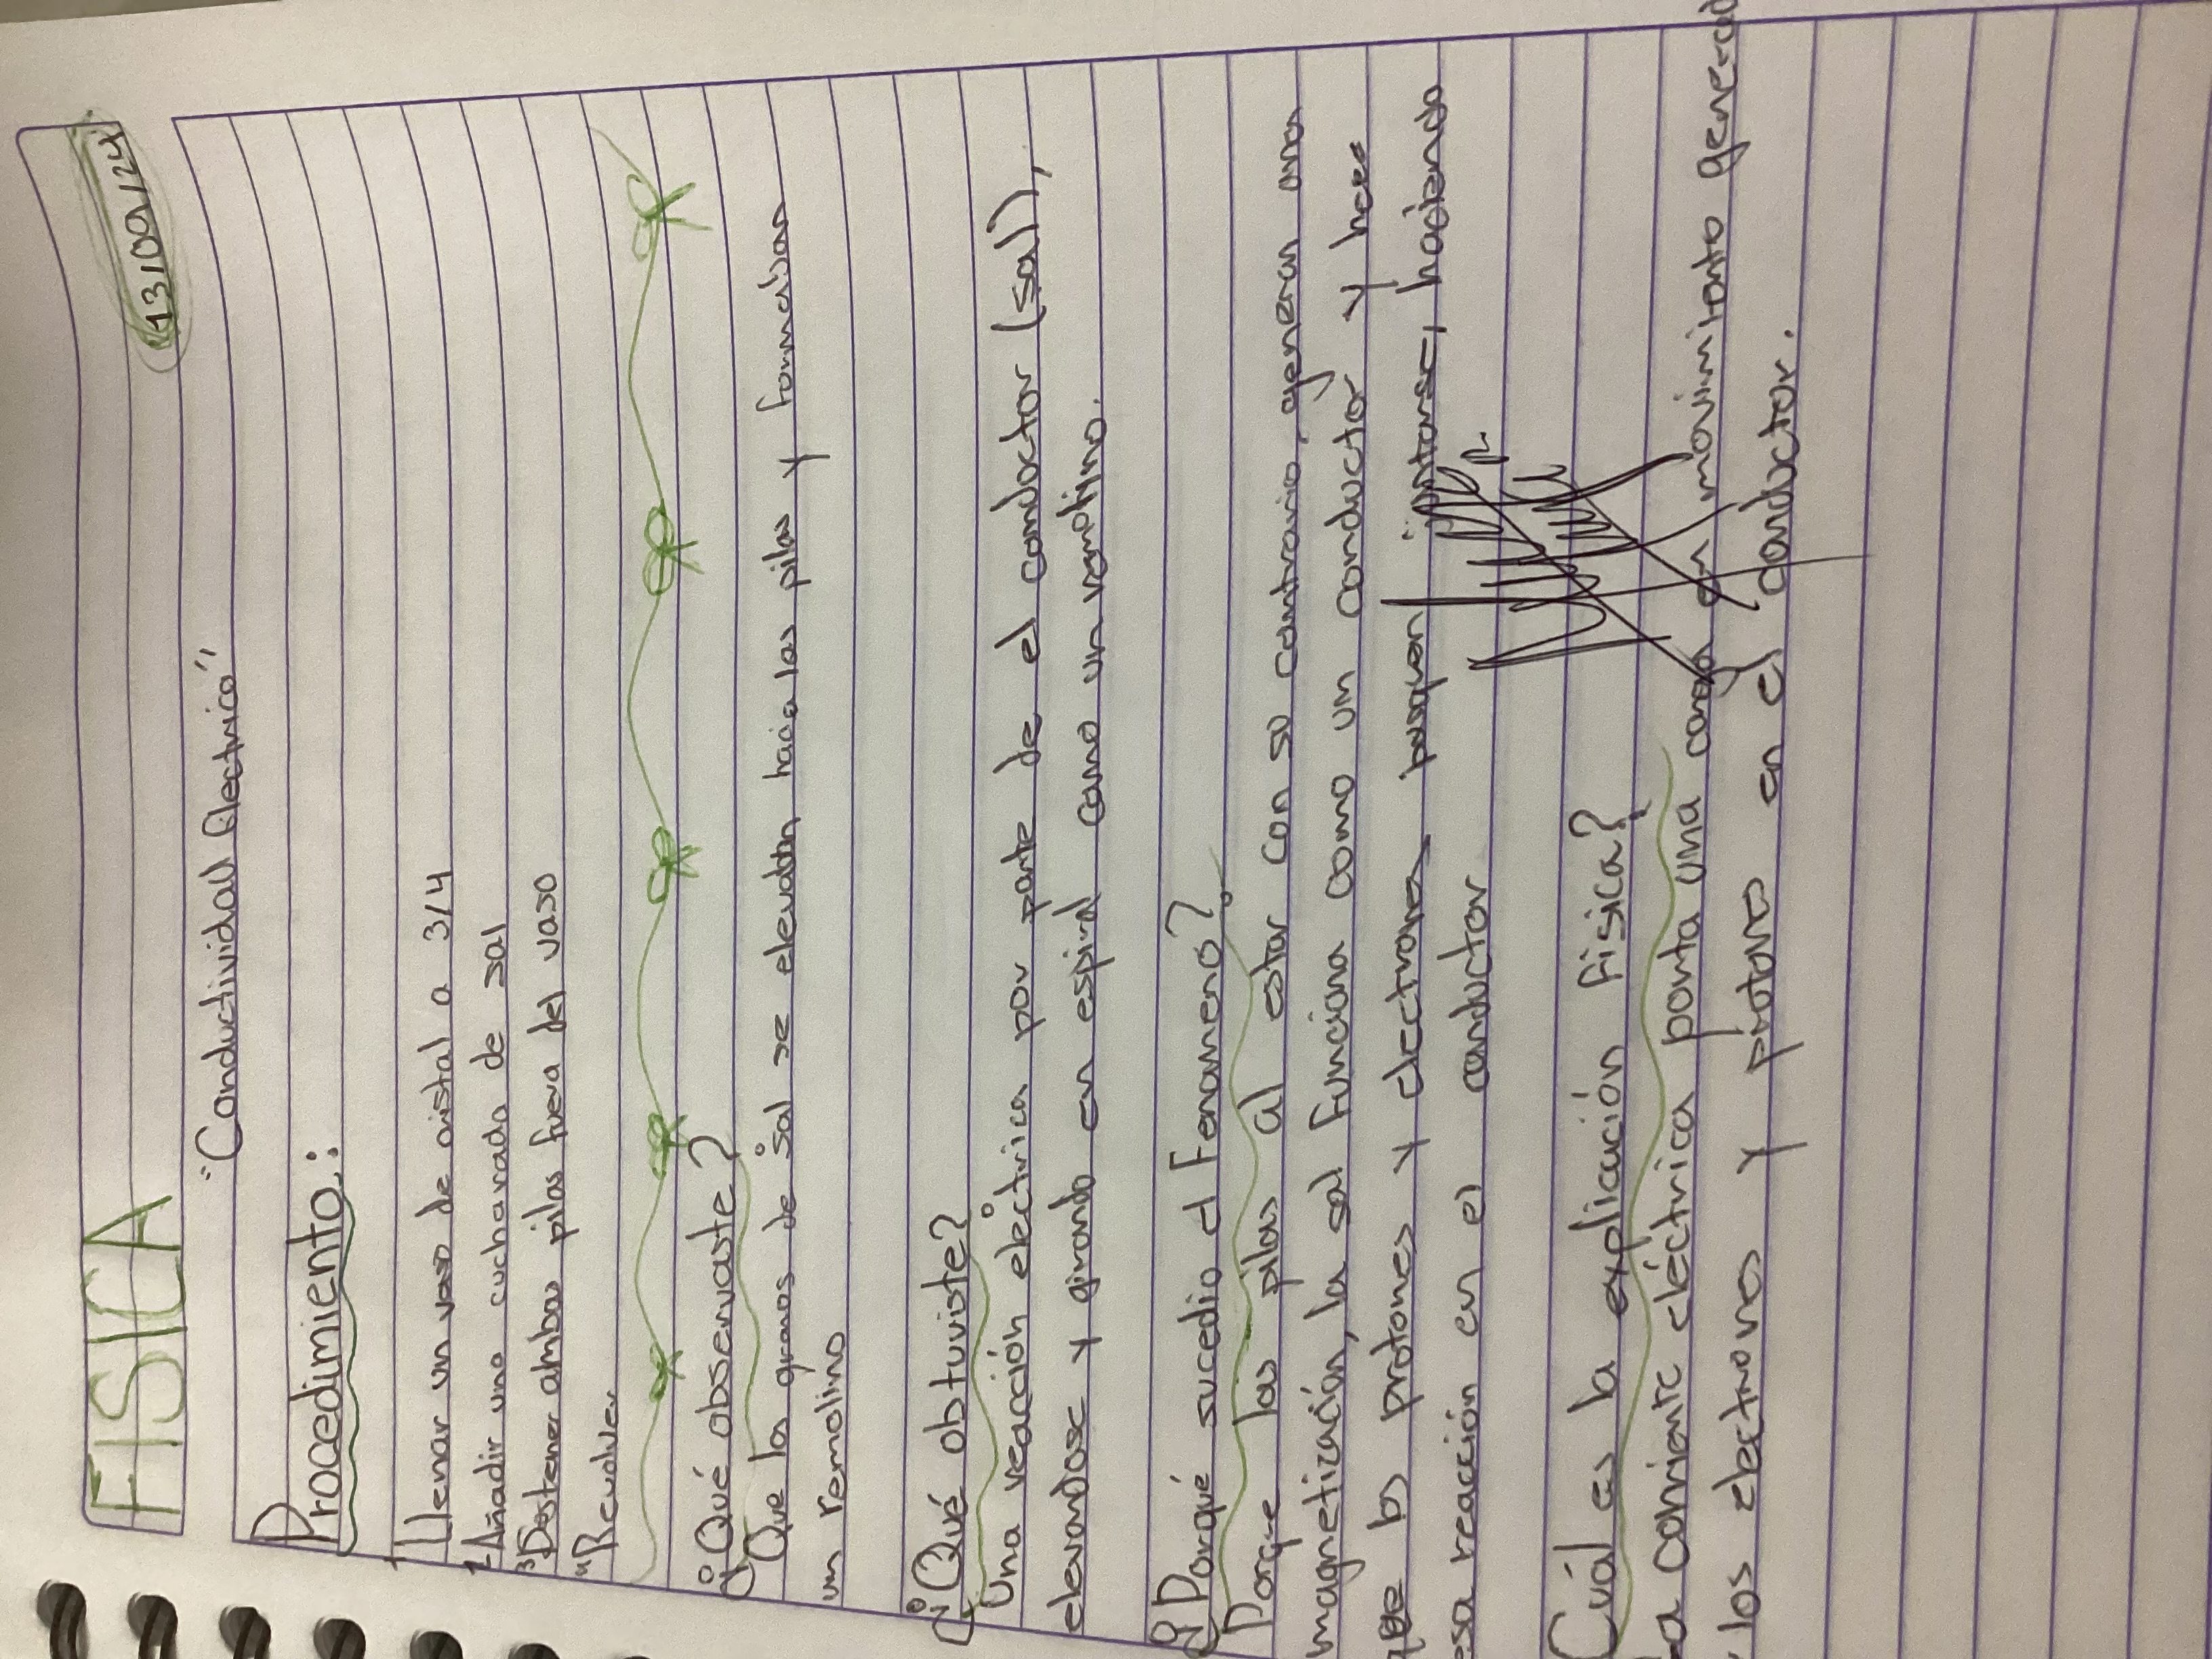 FISICA
13/09/24
"Conductividad Electrica"
Procedimiento:
1 Llenar un vaso de cristal a 3/4
2 Añadir una cucharada de sal
3 Destener ambas pilas fuera del vaso
4 Revolver
¿Qué observaste?
Que los granos de sal se elevaban hacia las pilas y formaban
un remolino
¿Qué obtuviste?
Una reacción eléctrica por parte de el conductor (sal),
elevandose y girando en espiral como un remolino.
¿Porqué sucedio el Fenomeno?
Porque las pilas al estar con su contrario, generan una
magnetización, la sal funciona como un conductor y hace
que los protones y electrones busquen juntarse, haciendo
esa reacción en el conductor
Cuál es la explicación física?
a corriente eléctrica porta una carga en movimiento generad
los electrones y protones en el conductor.